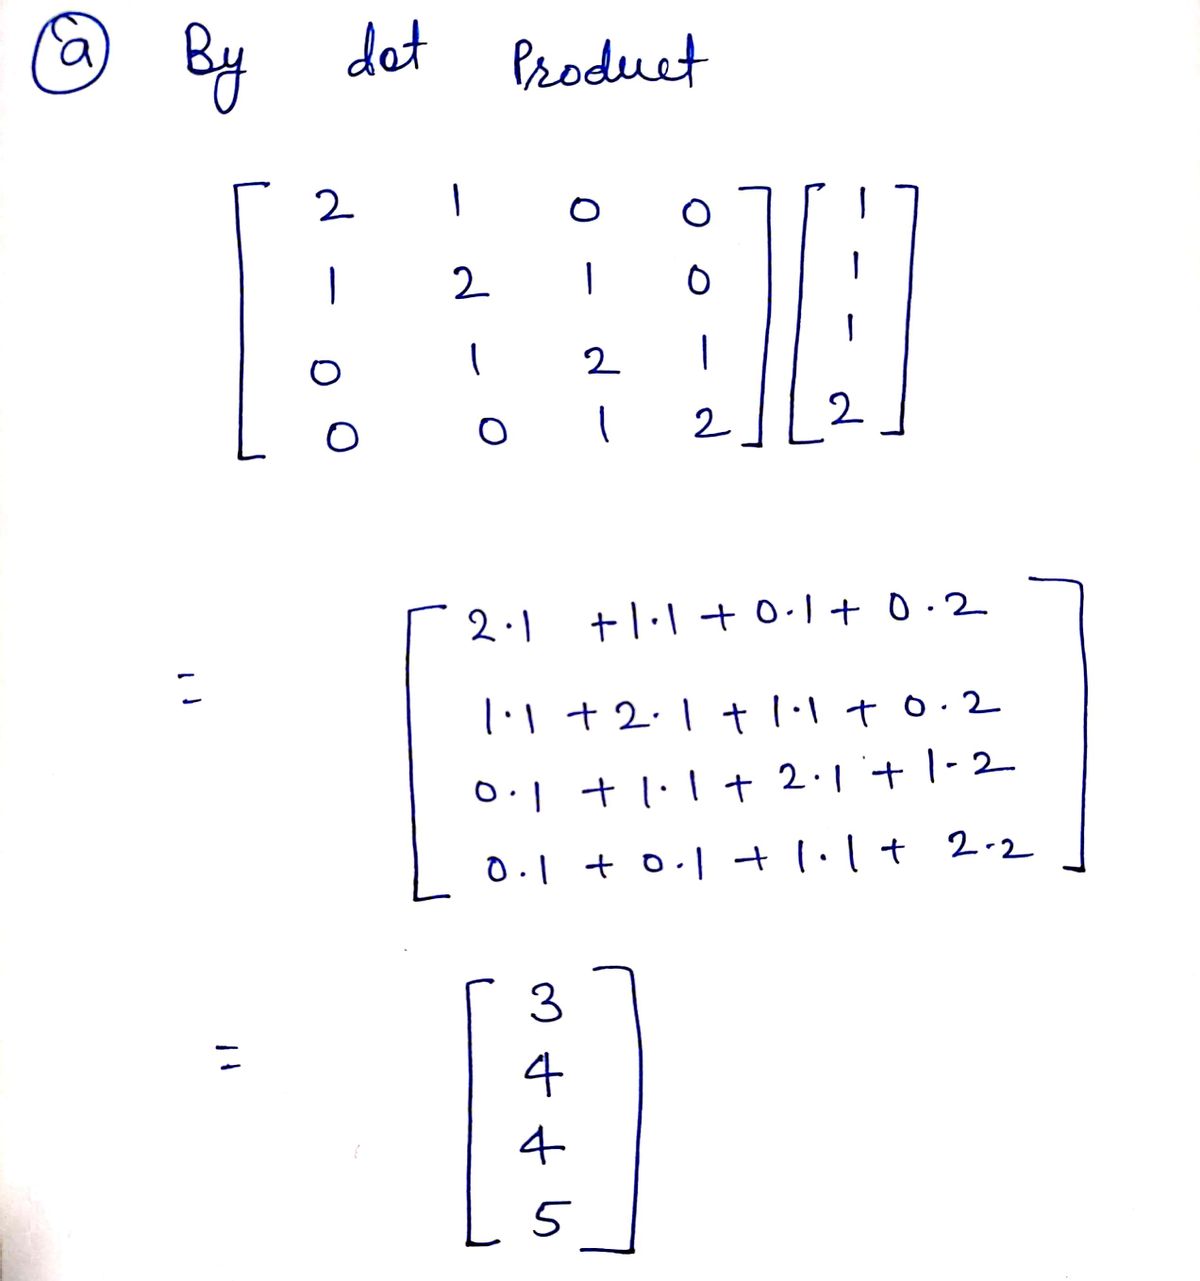 (a) By dot Product
2 1 0 0 1
1 2 1 0 1
0 1 2 1 1
0 0 1 2 2
= 2·1 +1·1 + 0·1 + 0·2
1·1 + 2·1 + 1·1 + 0·2
0·1 + 1·1 + 2·1 + 1·2
0·1 + 0·1 + 1·1 + 2·2
= 3
4
4
5